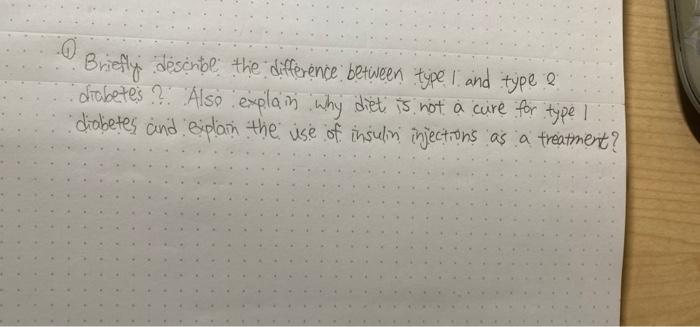 ① Briefly describe the difference between type 1 and type 2
diabetes? Also explain why diet is not a cure for type 1
diabetes and explain the use of insulin injections as a treatment?